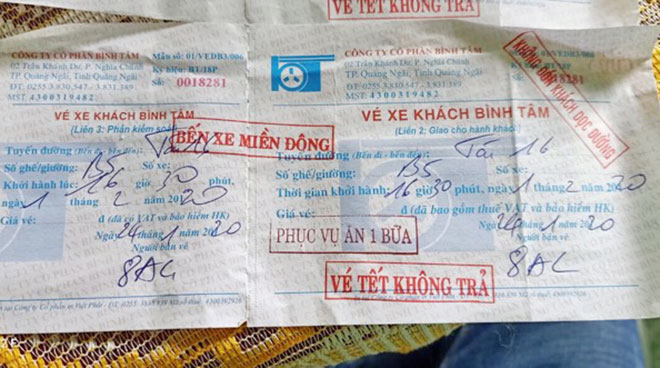 VÉ TẾT KHÔNG TRẢ
CÔNG TY CỔ PHẦN BÌNH TÂM
02 Trần Khánh Dư, P. Nghĩa Chánh
TP. Quảng Ngãi, Tỉnh Quảng Ngãi
ĐT: 0255.3.830.547 - 3.831
MST: 4300319482
Mẫu số: 01/VEDB3/006
Ký hiệu: BT/18P
Số: 0018281
VÉ XE KHÁCH BÌNH TÂM
(Liên 3: Phần kiểm soát)
BẾN XE MIỀN ĐÔNG
Tuyến đường (Bến đi - bến đến): Tài 16
Số ghế/giường: B5 Số xe:
Khởi hành lúc: 16 giờ 30 phút,
ngày 1 tháng 2 năm 2020
Giá vé: đ (đã có VAT và bảo hiểm HK)
Ngày 24 tháng 1 năm 2020
Người bán vé
CÔNG TY CỔ PHẦN BÌNH TÂM
02 Trần Khánh Dư, P. Nghĩa Chánh
TP. Quảng Ngãi, Tỉnh Quảng Ngãi
ĐT: 0255.3.830.547
MST: 4300319482
01/VEDB3/006
BT/18P
18281
KHÔNG ĐÓN KHÁCH DỌC ĐƯỜNG
VÉ XE KHÁCH BÌNH TÂM
(Liên 2: Giao cho hành khách)
Tuyến đường: (Bến đi - bến đến): Tài 16
Số ghế/giường: B5 Số xe:
Thời gian khởi hành: 16 giờ 30 phút, ngày 1 tháng 2 năm 2020
Giá vé: đ (đã bao gồm thuế VAT và bảo hiểm HK)
Ngày 24 tháng 1 năm 2020
Người bán vé
PHỤC VỤ ĂN 1 BỮA
VÉ TẾT KHÔNG TRẢ